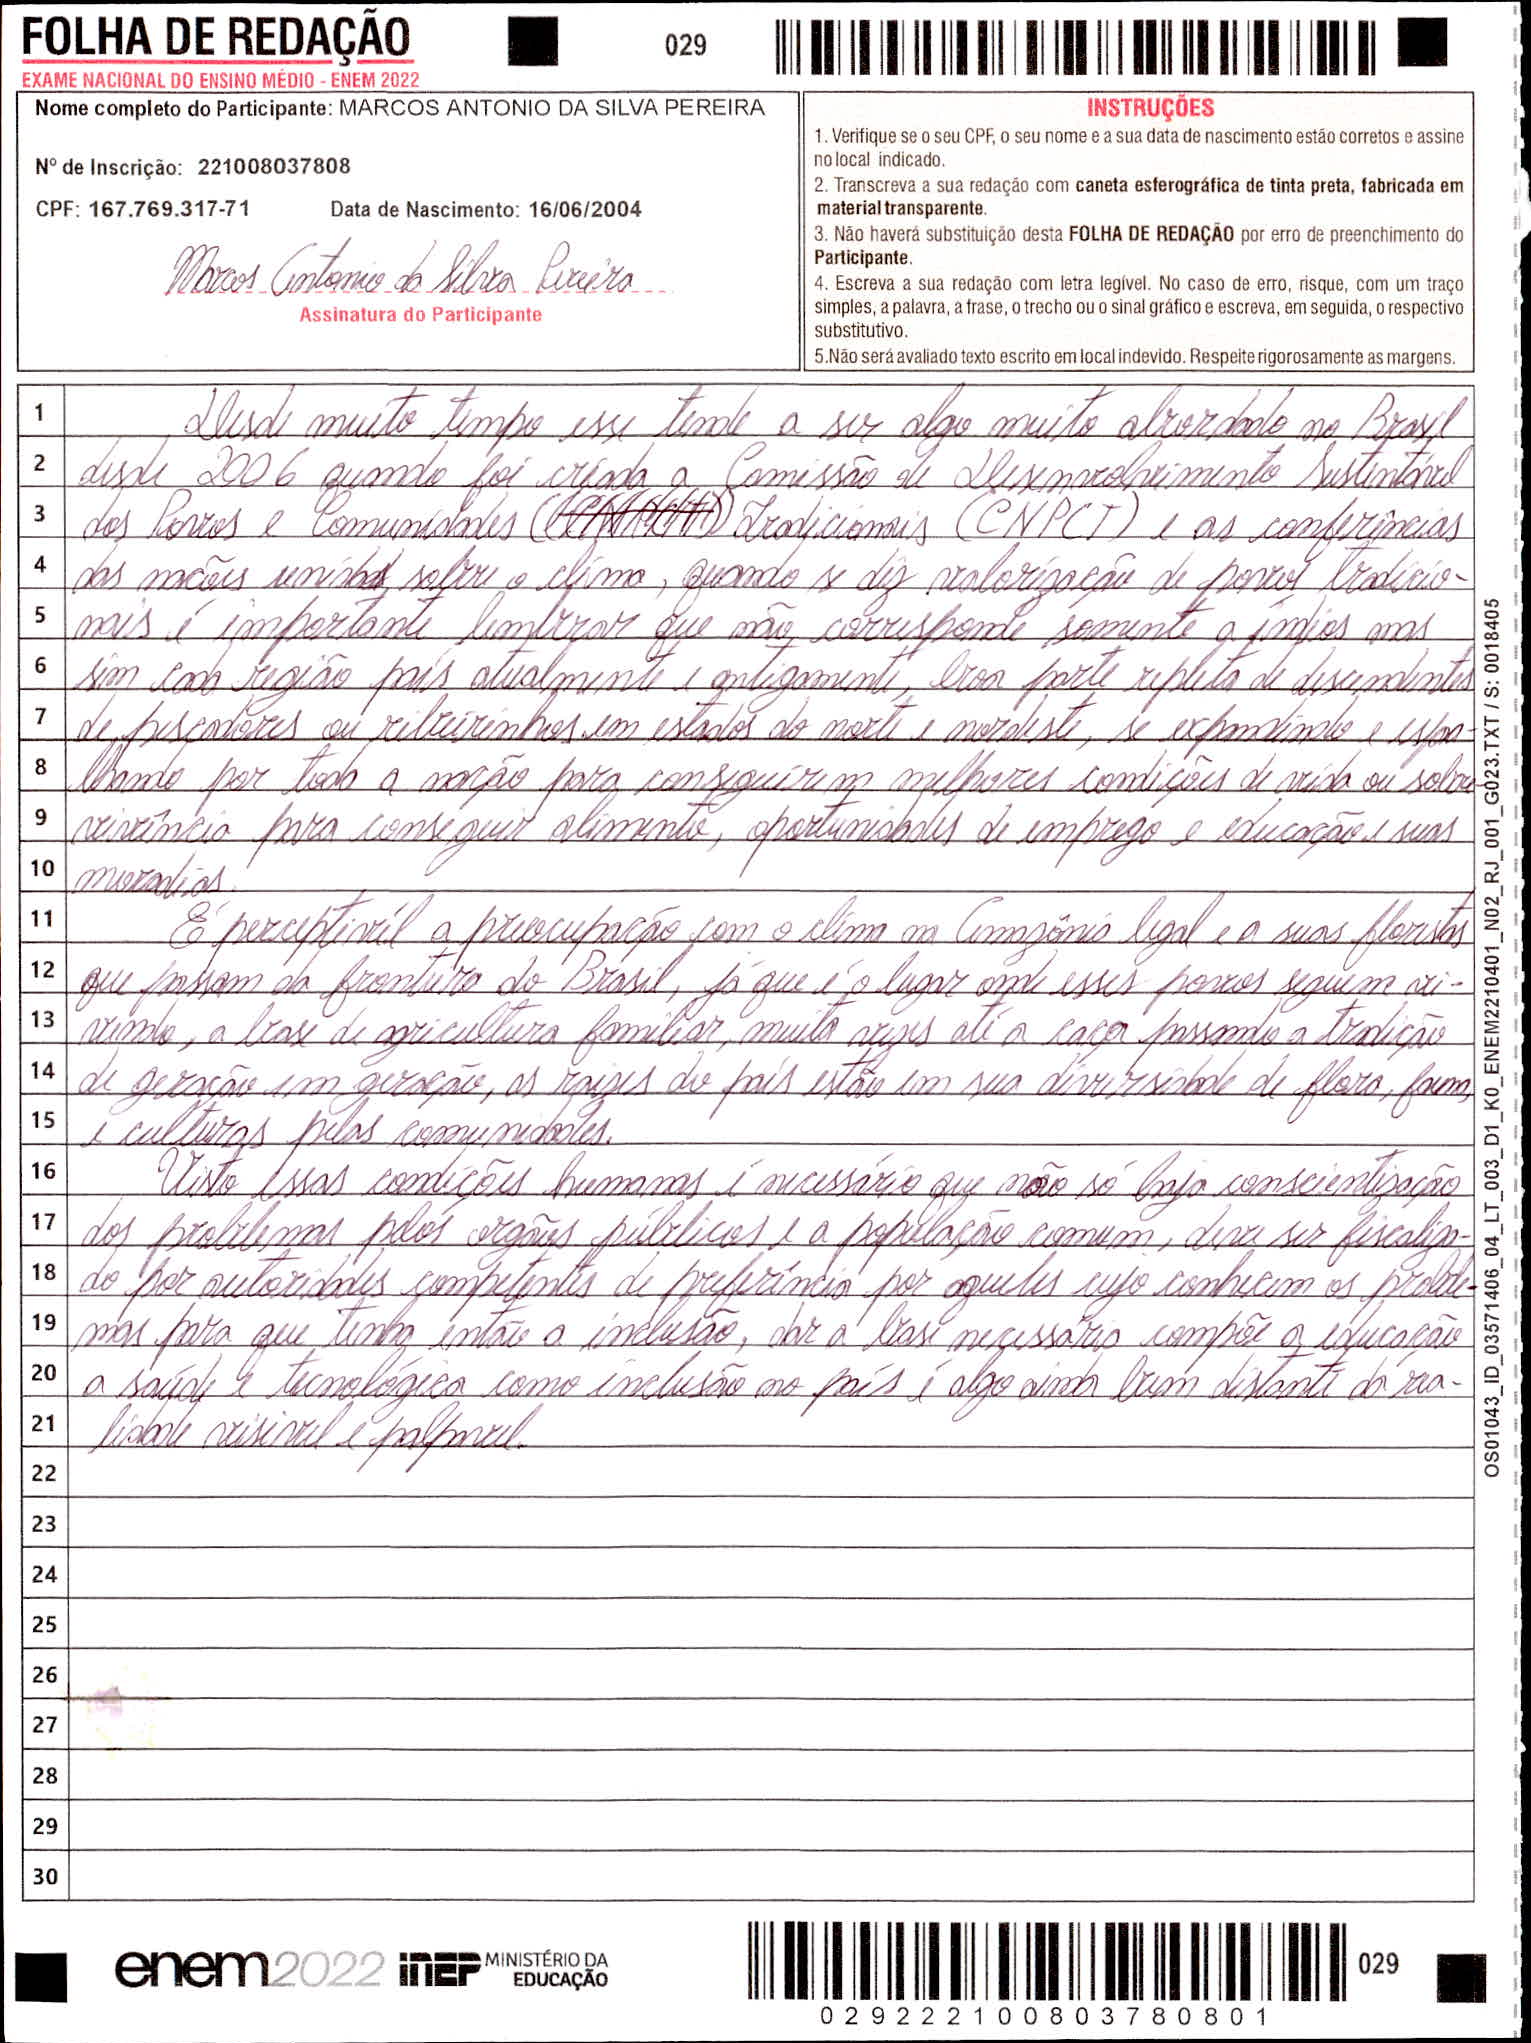 FOLHA DE REDAÇÃO
029
EXAME NACIONAL DO ENSINO MÉDIO - ENEM 2022
Nome completo do Participante: MARCOS ANTONIO DA SILVA PEREIRA
Nº de Inscrição: 221008037808
CPF: 167.769.317-71 Data de Nascimento: 16/06/2004
Marcos Antonio da Silva Pereira
Assinatura do Participante
INSTRUÇÕES
1. Verifique se o seu CPF, o seu nome e a sua data de nascimento estão corretos e assine
no local indicado.
2. Transcreva a sua redação com caneta esferográfica de tinta preta, fabricada em
material transparente.
3. Não haverá substituição desta FOLHA DE REDAÇÃO por erro de preenchimento do
Participante.
4. Escreva a sua redação com letra legível. No caso de erro, risque, com um traço
simples, a palavra, a frase, o trecho ou o sinal gráfico e escreva, em seguida, o respectivo
substitutivo.
5.Não será avaliado texto escrito em local indevido. Respeite rigorosamente as margens.
1 Desde muito tempo esse tende a ser algo muito abordado no Brasil
2 desde 2006 quando foi criada a Comissão de Desenvolvimento Sustentável
3 dos Povos e Comunidades Tradicionais (CNPCT) e as conferências
4 das nações unidas sobre o clima, quando se diz valorização de povos tradicio-
5 nais é importante lembrar que não corresponde somente a índios mas
6 sim cada região país atualmente e antigamente, boa parte repleta de descendentes
7 de pescadores ou ribeirinhos em estados do norte e nordeste, se expandindo e espa-
8 lhando por toda a nação para conseguirem melhores condições de vida ou sobre-
9 vivência para conseguir alimento, oportunidades de emprego e educação e suas
10 moradias.
11 É perceptivél a preocupação com o clima na Amazônia legal e a suas florestas
12 que passam da fronteira do Brasil, já que é o lugar onde esses povos seguem vi-
13 vendo, a base de agricultura familiar, muita vezes até a caça passando a tradição
14 de geração em geração, as raizes do país estão em sua diversidade de flora, fauna,
15 e culturas pelas comunidades.
16 Visto essas condições humanas é necessário que não só haja conscientização
17 dos problemas pelos orgãos públicos e a população comum, deve ser fiscaliza-
18 do por autoridades competentes de preferência por aqueles cujo conhecem os proble-
19 mas para que tenha então a inclusão, dar a base necessária compõe a educação
20 a saúde e tecnológica como inclusão no país é algo ainda bem distante da rea-
21 lidade visivel e palpavel.
22
23
24
25
26
27
28
29
30
OS01043_ID_03571406_04_LT_003_D1_K0_ENEM2210401_N02_RJ_001_G023.TXT / S: 0018405
enem2022 INEP MINISTÉRIO DA
EDUCAÇÃO
029
029222100803780801